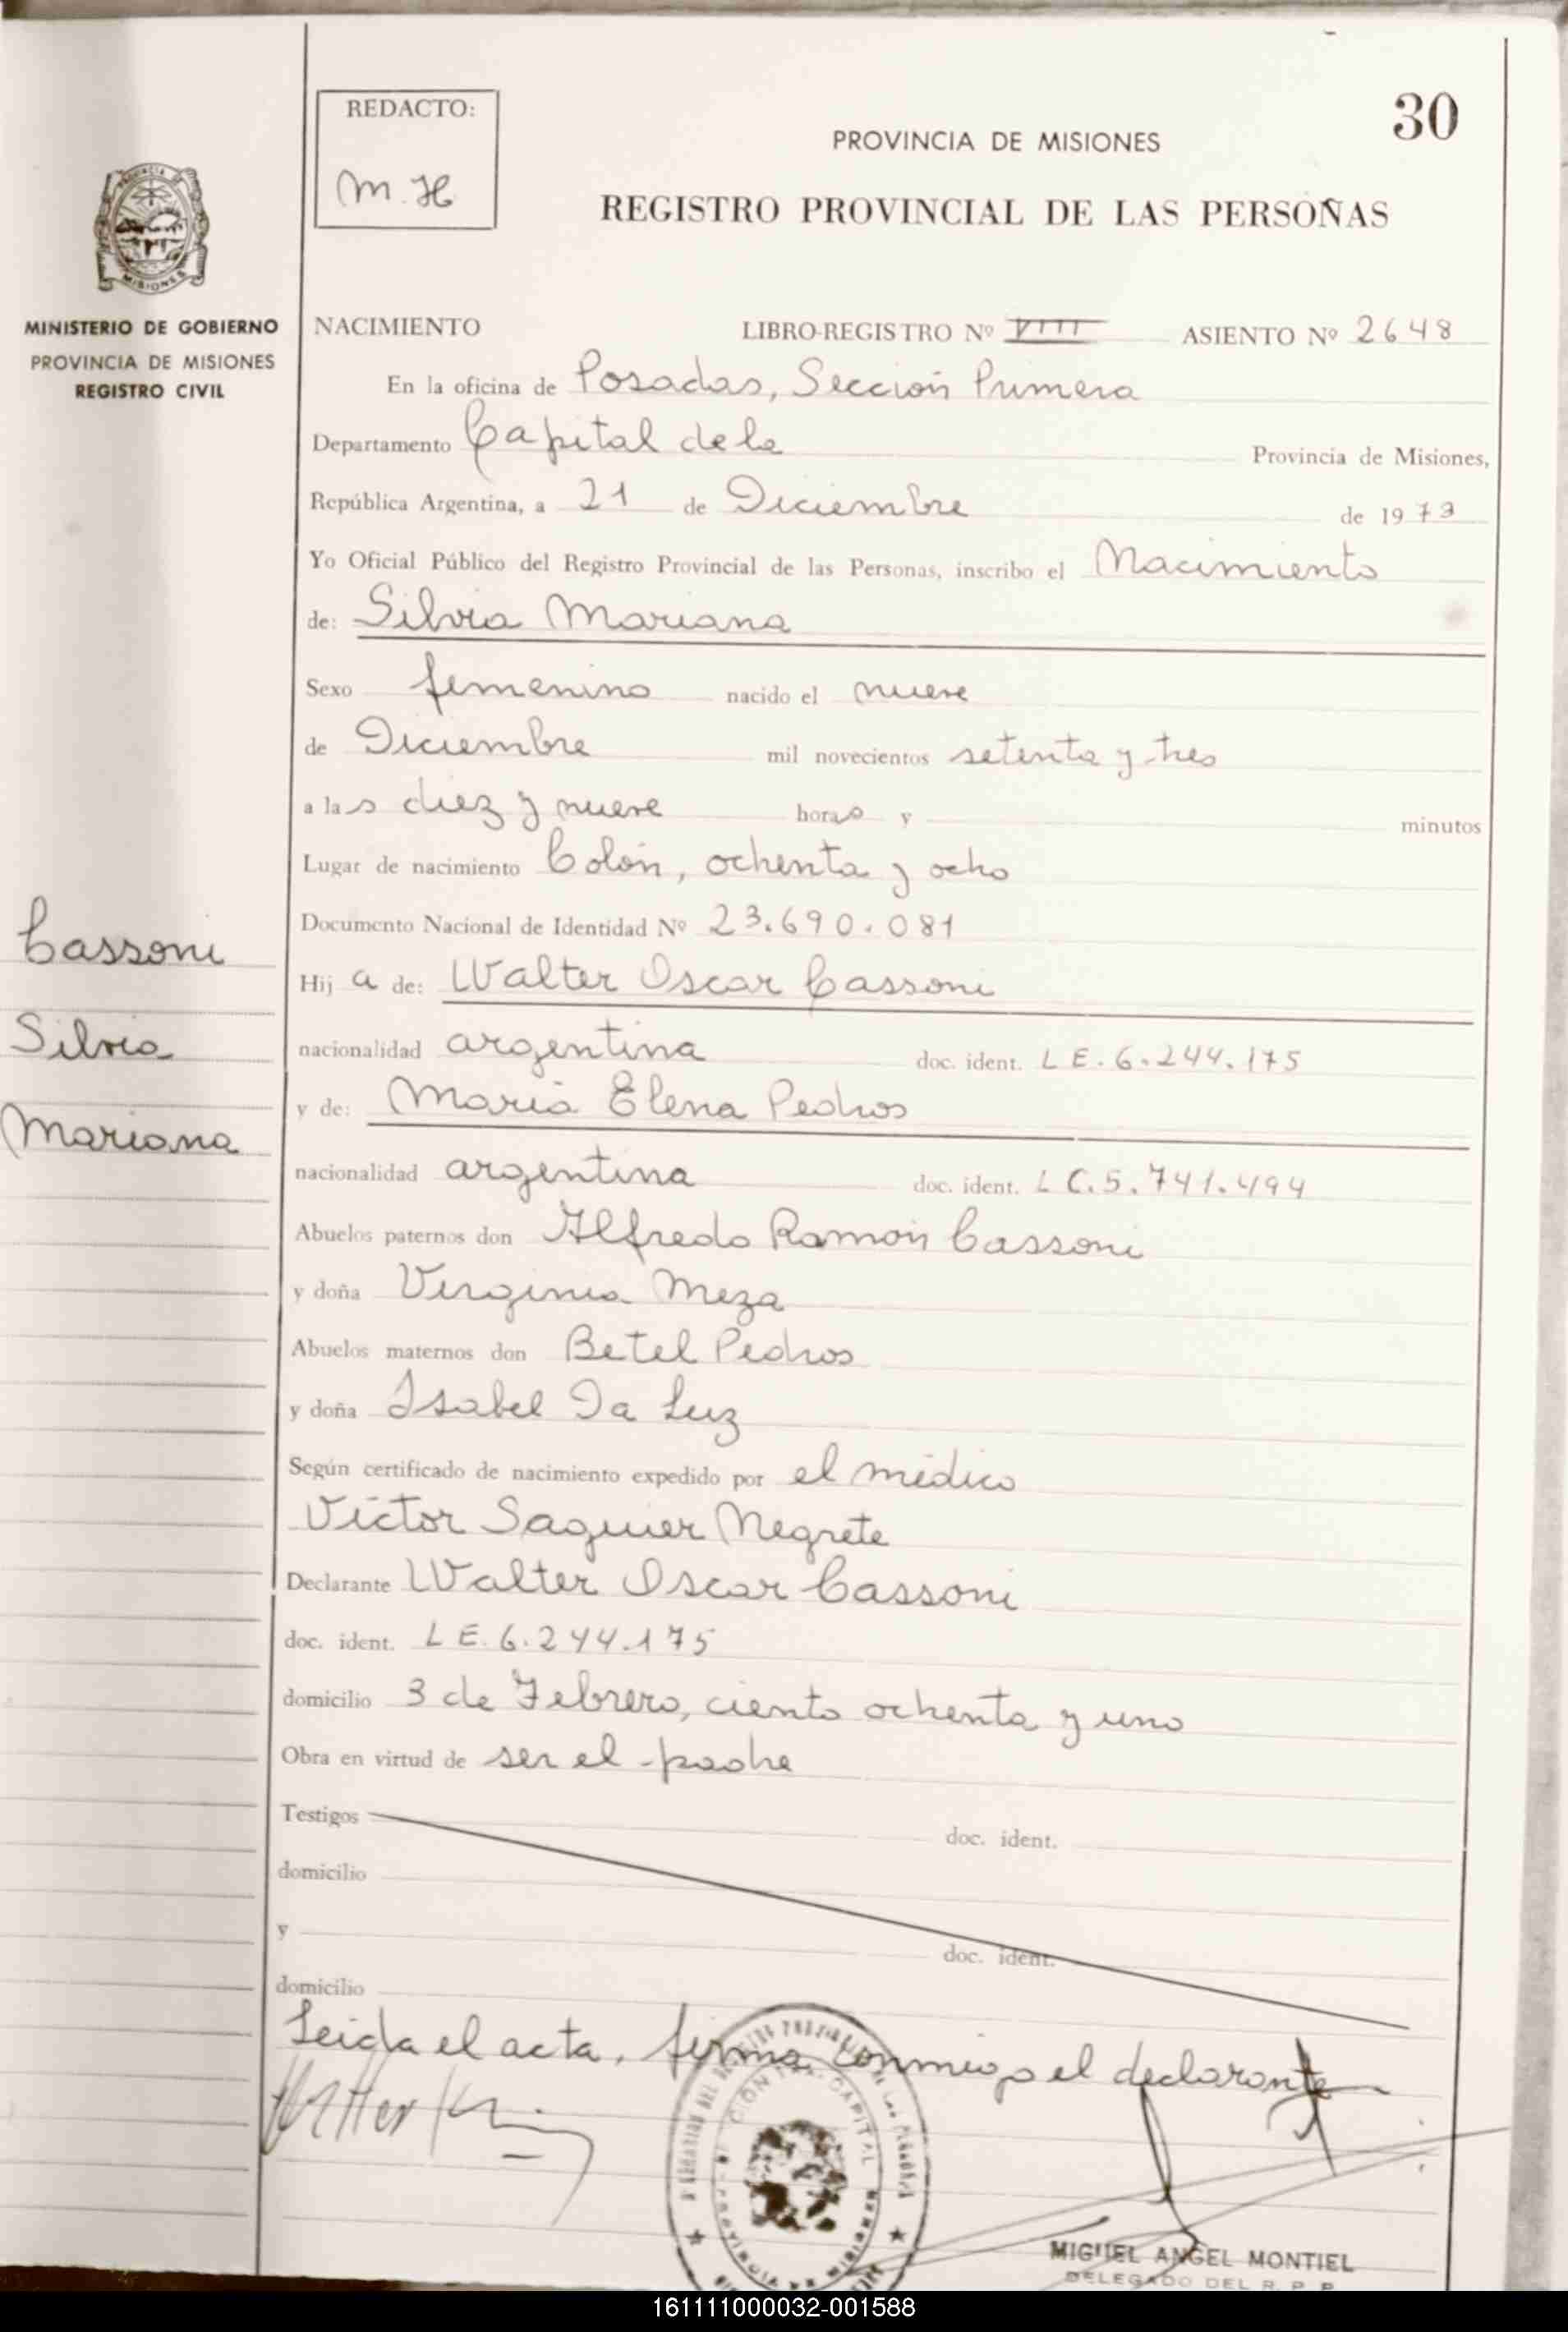 30
REDACTO:
M.H
PROVINCIA DE MISIONES
REGISTRO PROVINCIAL DE LAS PERSONAS
MISIONES
MINISTERIO DE GOBIERNO
PROVINCIA DE MISIONES
REGISTRO CIVIL
NACIMIENTO LIBRO-REGISTRO Nº VIII ASIENTO Nº 2648
En la oficina de Posadas, Sección Primera
Departamento Capital de la Provincia de Misiones,
República Argentina, a 21 de Diciembre de 1973
Yo Oficial Público del Registro Provincial de las Personas, inscribo el Nacimiento
de: Silvia Mariana
Sexo femenino nacido el nueve
de Diciembre mil novecientos setenta y tres
a las diez y nueve horas y minutos
Lugar de nacimiento Colón, ochenta y ocho
Documento Nacional de Identidad Nº 23.690.081
Hij a de: Walter Oscar Cassoni
nacionalidad argentina doc. ident. L E. 6.244.175
y de: María Elena Pedros
nacionalidad argentina doc. ident. L C. 5.741.494
Abuelos paternos don Alfredo Ramón Cassoni
y doña Virginia Meza
Abuelos maternos don Betel Pedros
y doña Isabel Da Luz
Según certificado de nacimiento expedido por el médico
Víctor Saguier Negrete
Declarante Walter Oscar Cassoni
doc. ident. L E. 6.244.175
domicilio 3 de Febrero, ciento ochenta y uno
Obra en virtud de ser el padre
Testigos doc. ident.
domicilio
y doc. ident.
domicilio
Leida el acta, firma conmigo el declarante
Cassoni
Silvia
Mariana
CAPITAL
MIGUEL ANGEL MONTIEL
DELEGADO DEL R. P. P.
161111000032-001588